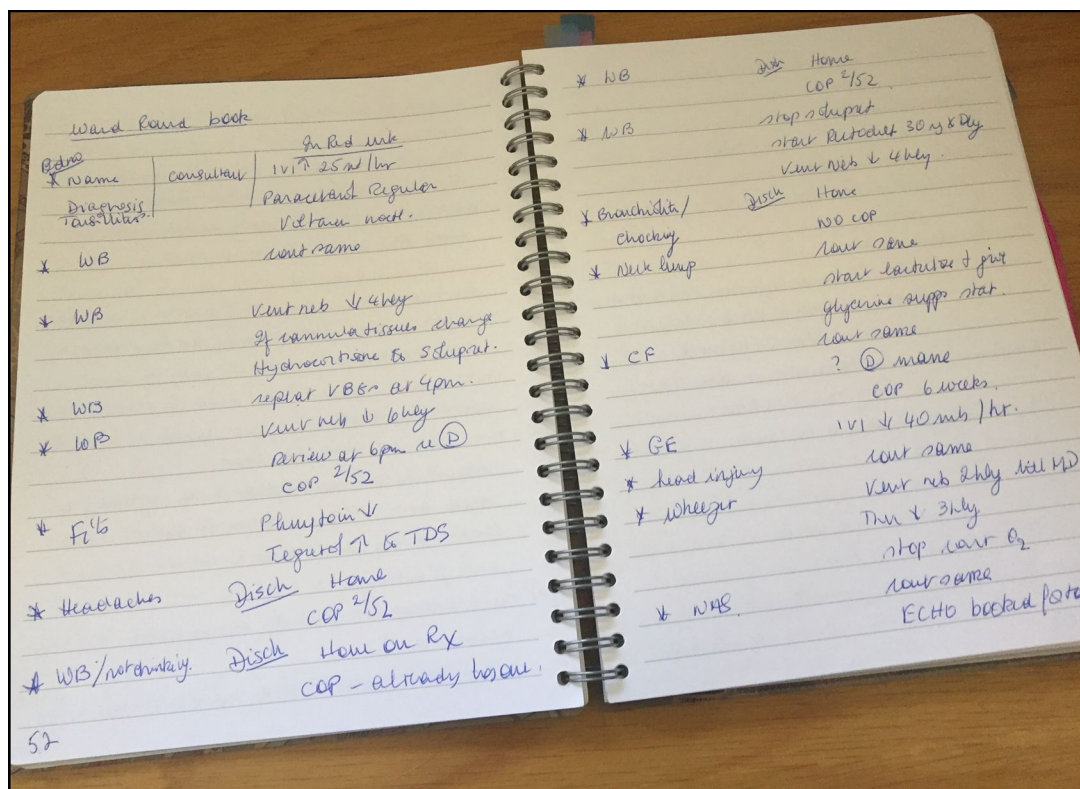 Ward Round book
In Red ink
Bed no
* Name | consultant | IVI ↑ 25ml/hr
Diagnosis Paracetamol Regular
Tonsillitis. Voltarin noct.
* WB cont same
* WB Vent neb ↓ 4hly
If cannula tissues change
Hydrocortisone to Soluprel.
* WB repeat VBGs at 4pm.
* WB Vent neb ↓ 6hly
Review at 6pm re Ⓓ
COP 2/52
* Fits Phenytoin ↓
Tegretol ↑ to TDS
* Headaches Disch Home
COP 2/52
* WB/not drinking. Disch Home on Rx
COP - already has one.
52
* WB Disch Home
COP 2/52.
* WB stop soluprel
start 30mg x Dly
Vent Neb ↓ 4hly.
* Bronchiolitis/ Disch Home
Chocking NO COP
* Neck lump cont same
start lactulose + give
glycerine supps stat.
* CF cont same
? Ⓓ mane
COP 6 weeks.
* GE IVI ↓ 40mls/hr.
* head injury cont same
* Wheezer Vent neb 2hly till MD
Then ↓ 3hly
stop cont O2
* NAS. cont same
ECHO booked for